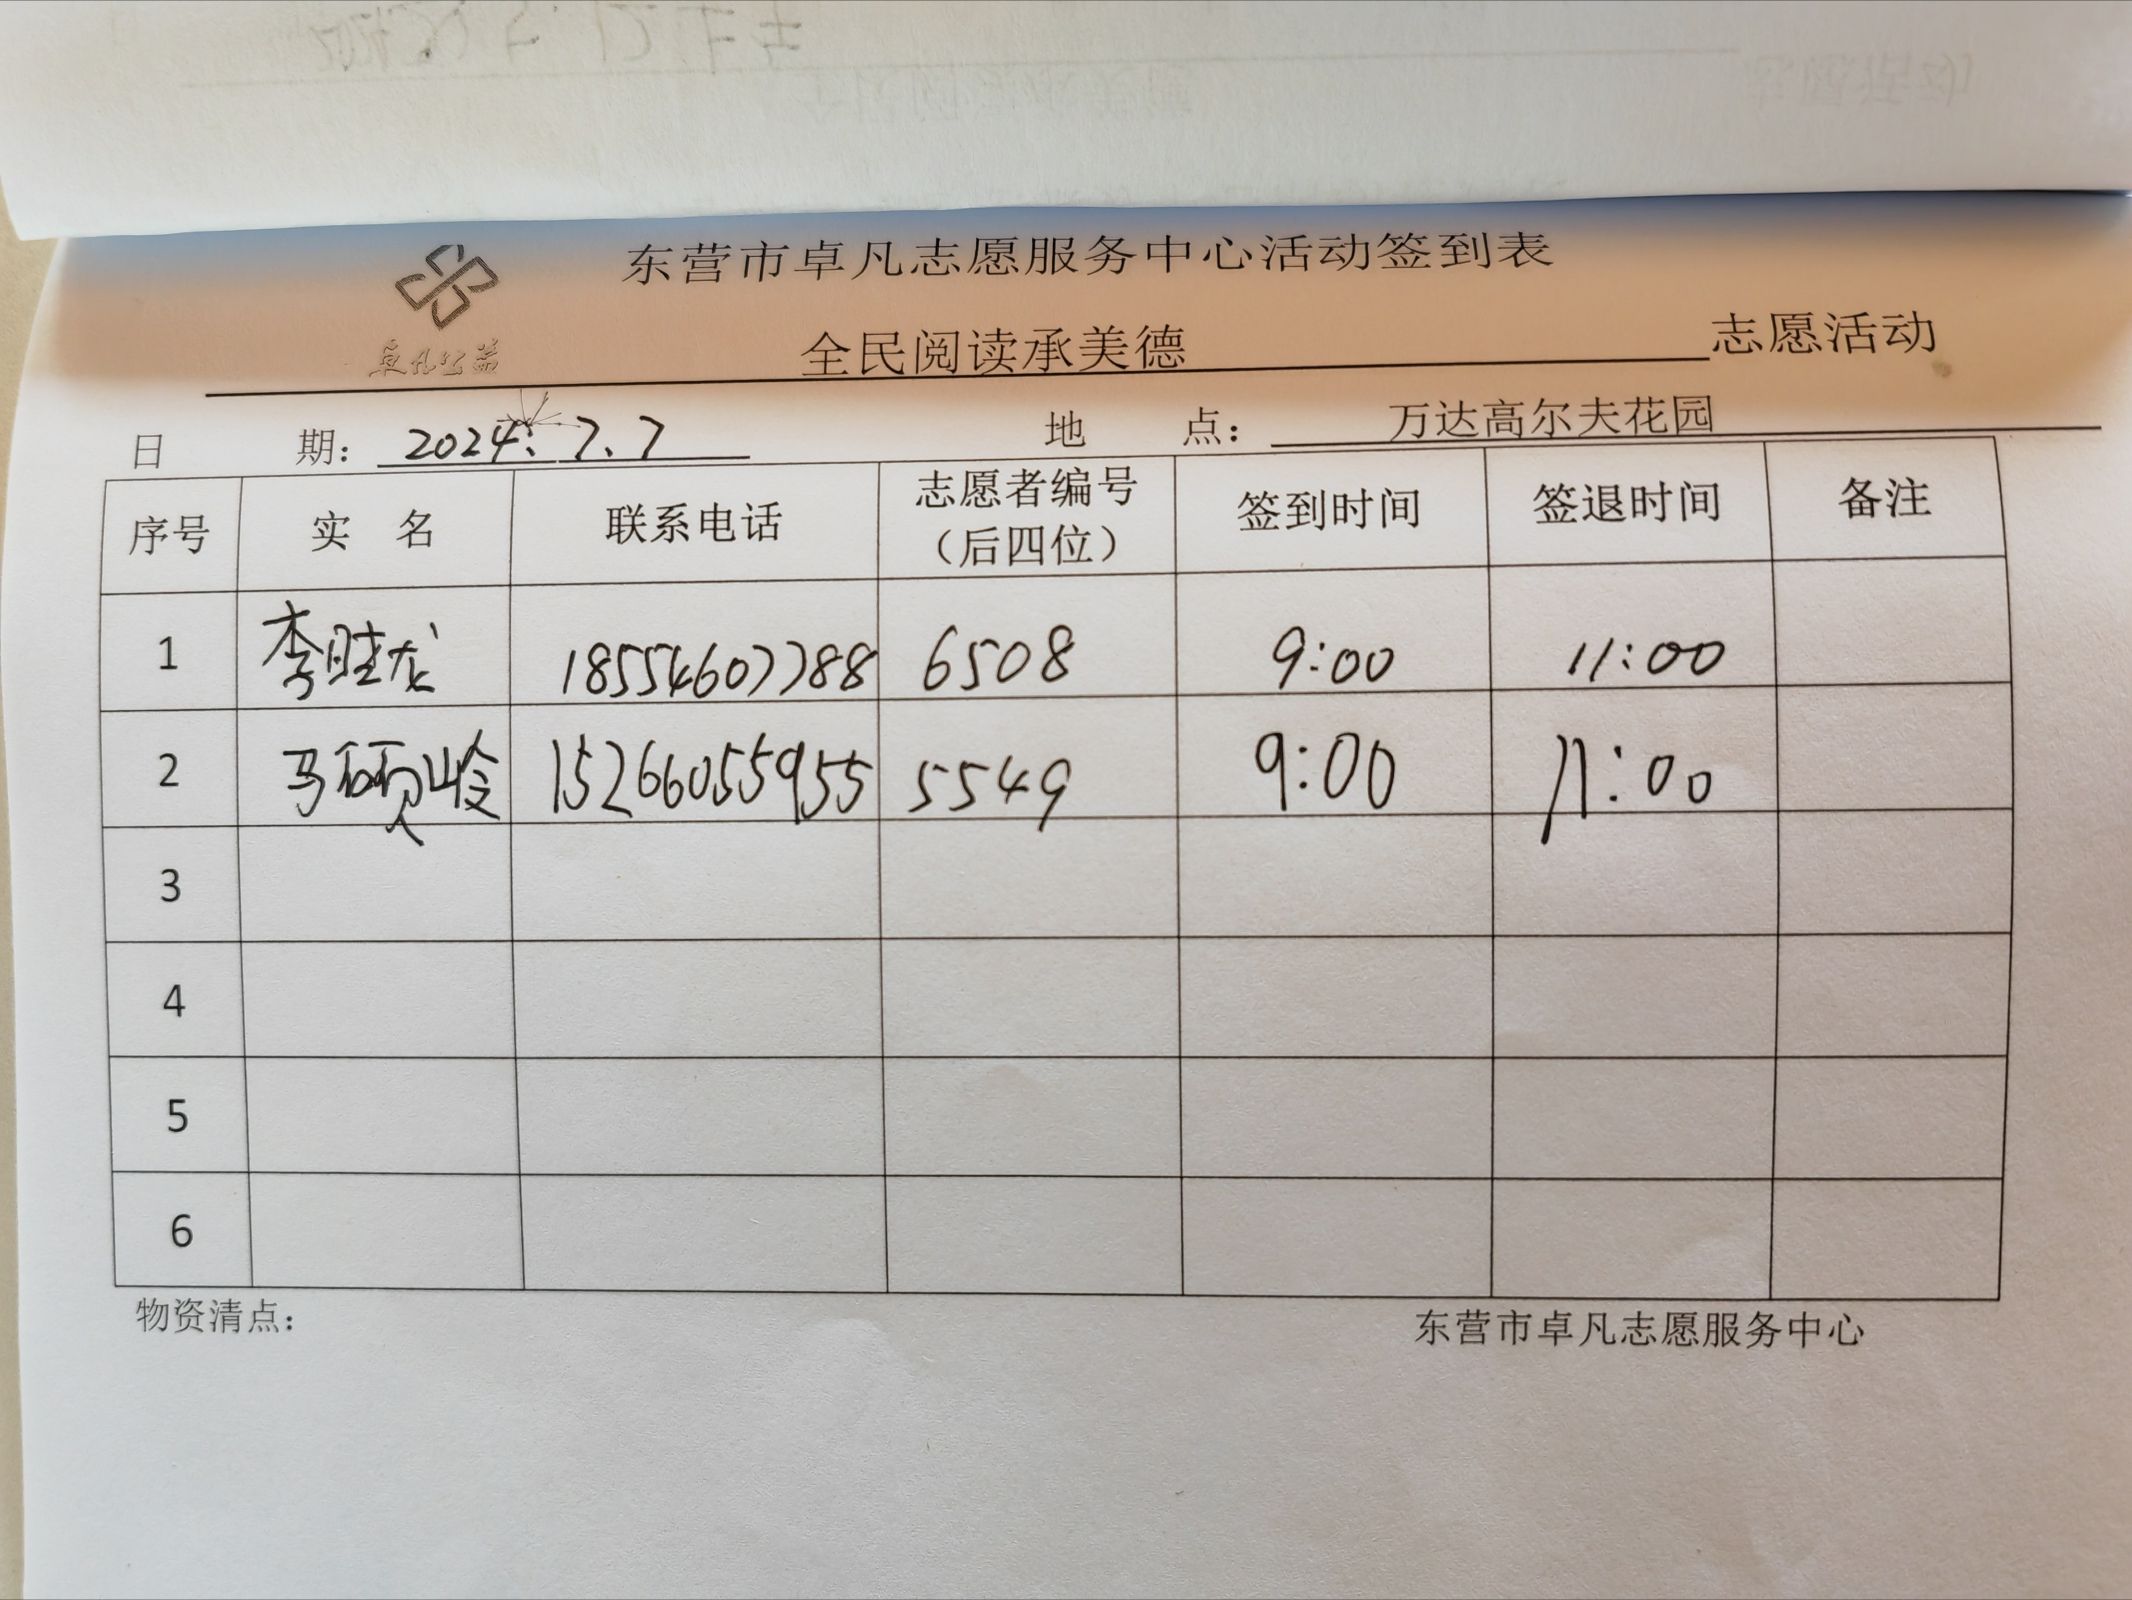 东营市卓凡志愿服务中心活动签到表
卓凡公益
全民阅读承美德 志愿活动
日 期： 2024.7.7 地 点： 万达高尔夫花园
序号 实 名 联系电话 志愿者编号（后四位） 签到时间 签退时间 备注
1 李胜龙 18554607788 6508 9:00 11:00
2 马硕岭 15266055955 5549 9:00 11:00
3
4
5
6
物资清点： 东营市卓凡志愿服务中心